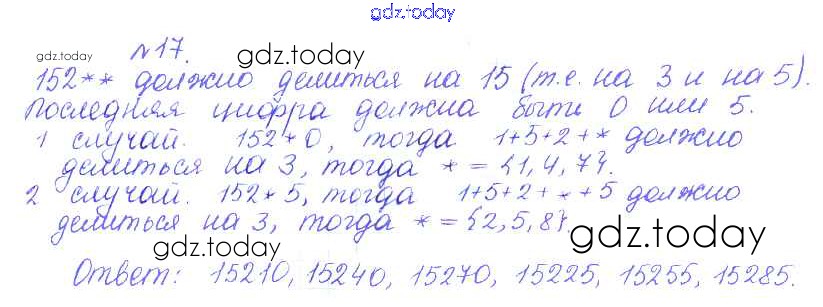 gdz.today
№17.
gdz.today
gdz.today
152** должно делиться на 15 (т.е. на 3 и на 5).
Последняя цифра должна быть 0 или 5.
1 случай. 152*0, тогда 1+5+2+* должно
делиться на 3, тогда * = {1,4,7}.
2 случай. 152*5, тогда 1+5+2+*+5 должно
делиться на 3, тогда * = {2,5,8}.
gdz.today
gdz.today
Ответ: 15210, 15240, 15270, 15225, 15255, 15285.